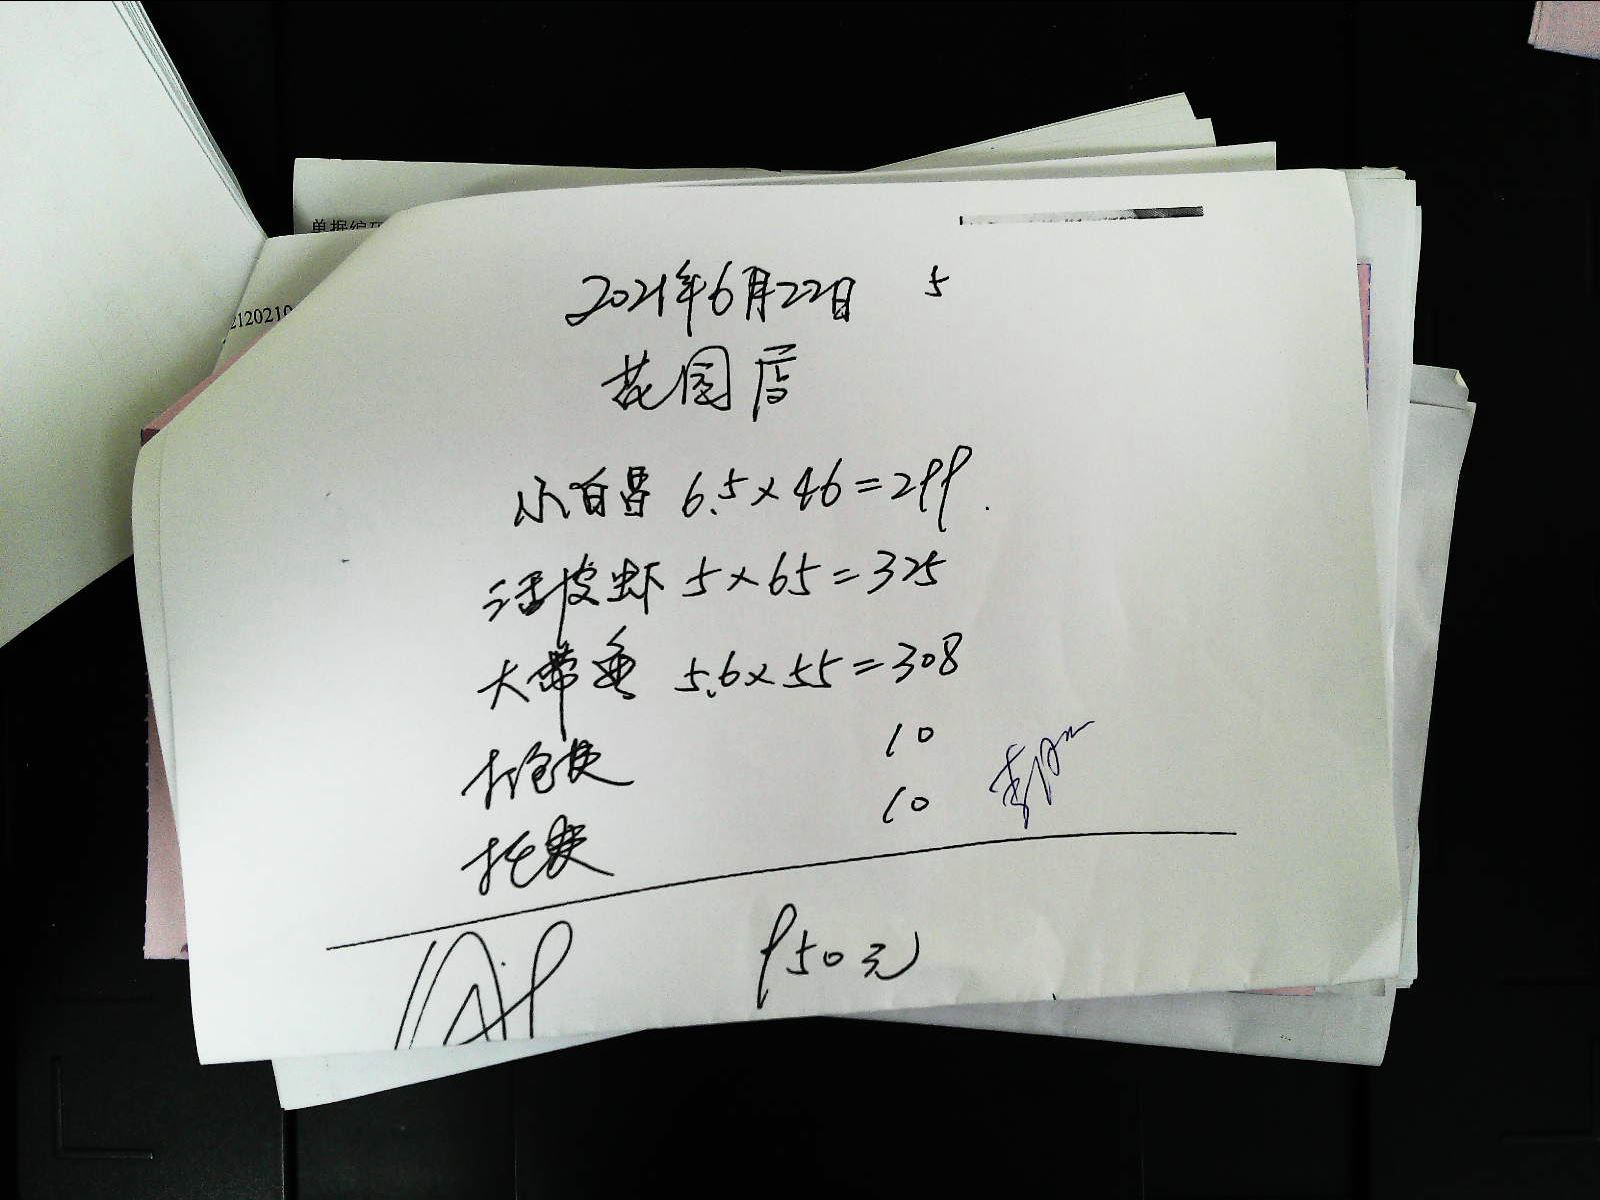 单据编
2120210
2021年6月22日 5
花园店
小白昌 6.5×46=299.
活皮虾 5×65=325
大带鱼 5.6×55=308
10
10
950元